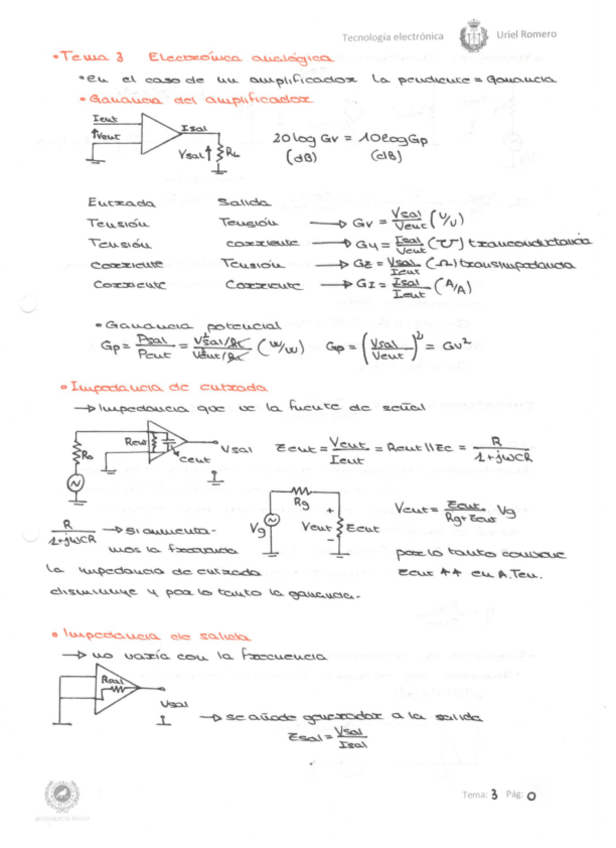 Tecnología electrónica Uriel Romero
• Tema 3 Electrónica analógica
• en el caso de un amplificador la pendiente = Ganancia
• Ganancia del amplificador
Ient
Vent
Isal
Vsal
RL
20 log Gv = 10 log Gp
(dB) (dB)
Entrada Salida
Tensión Tensión → Gv = Vsal/Vent (V/V)
Tensión corriente → Gy = Isal/Vent (℧) tranconductancia
Corriente Tensión → Gz = Vsal/Ient (Ω) transimpedancia
Corriente Corriente → GI = Isal/Ient (A/A)
• Ganancia potencial
Gp = Psal/Pent = V²sal/R/V²ent/R (W/W) Gp = (Vsal/Vent)² = Gv²
• Impedancia de entrada
→ Impedancia que ve la fuente de señal
Rent
Cent
Vsal
Zent = Vent/Ient = Rent//Zc = R/1+jωCR
Rg
Vg
Vent
+
-
Zent
Vent = Zent/Rg+Zent Vg
R/1+jωCR → si aumenta-
mos la frecuencia
la impedancia de entrada
disminuye y por lo tanto la ganancia.
por lo tanto conviene
Zent ↑↑ en A.Ten.
• Impedancia de salida
→ no varía con la frecuencia
Rsal
Vsal
→ se añade generador a la salida
Zsal = Vsal/Isal
Tema: 3 Pág: 0